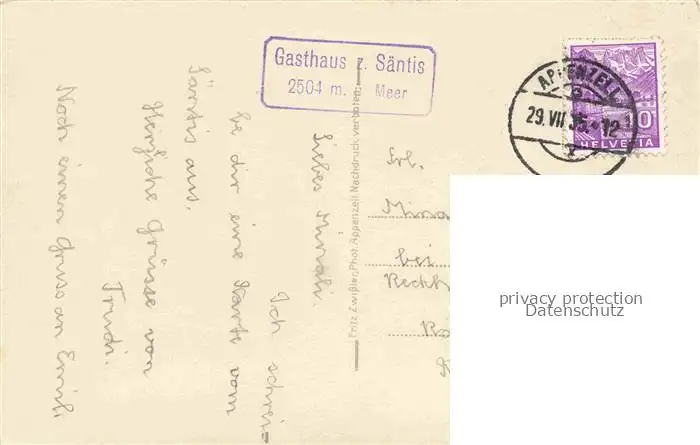 Gasthaus z. Säntis
2504 m. Meer
APPENZELL
29.VII.35.-12
HELVETIA
Fritz Zwißler, Phot. Appenzell, Nachdruck verboten.
Liebes Minali.
Ich schrei=
be dir eine Karte vom
Säntis aus.
Herzliche Grüsse von
Trudi.
Noch einen Gruss an Emil.
Frl.
Mina
bei
Rechts
privacy protection
Datenschutz